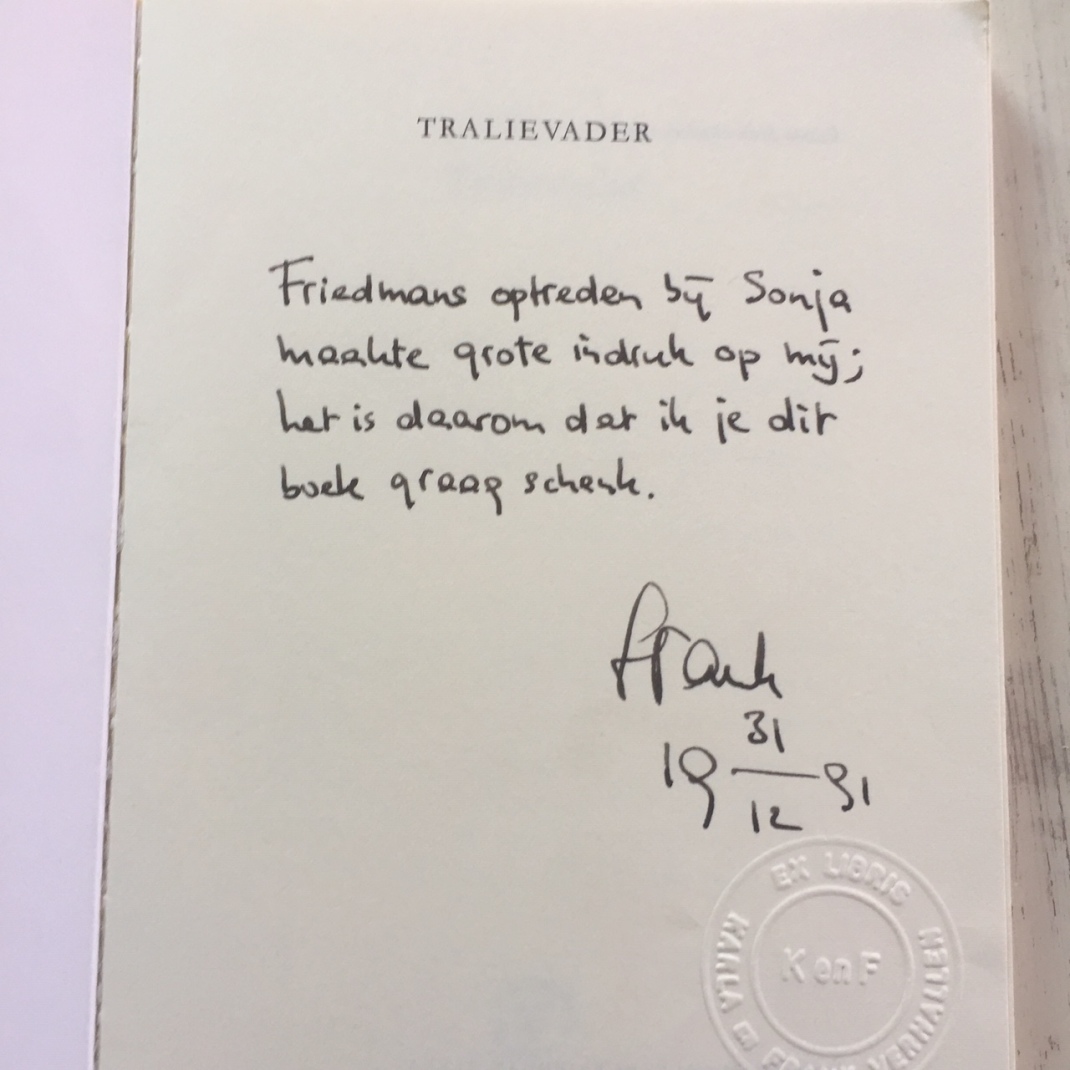 TRALIEVADER
Friedmans optreden bij Sonja
maakte grote indruk op mij;
het is daarom dat ik je dit
boek graag schenk.
Frank
31
19 — 91
12
EX LIBRIS
K en F
KARLA en FRANK VERHALLEN